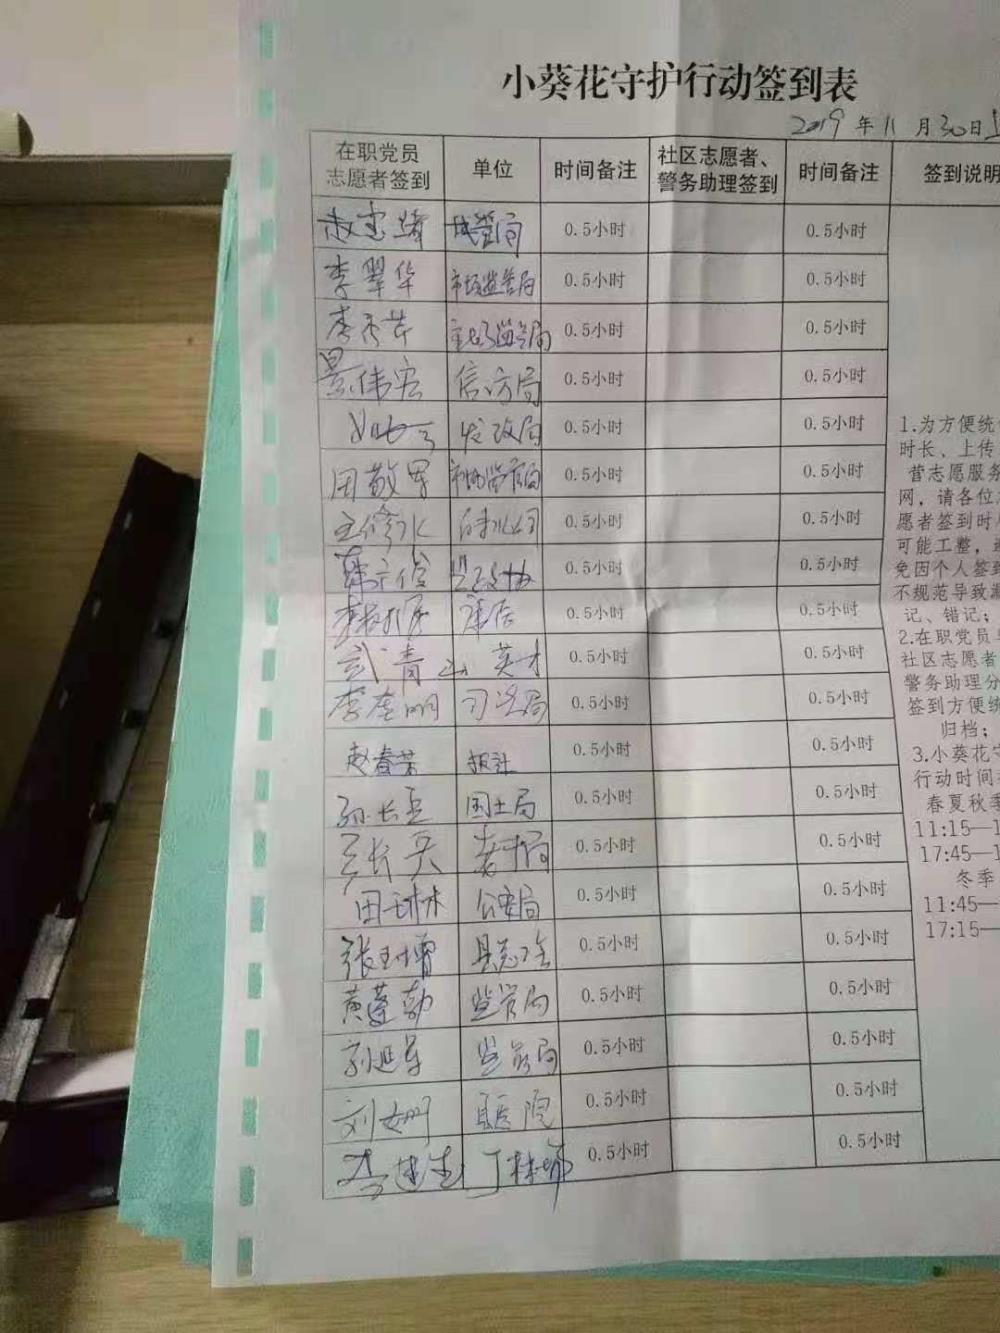 小葵花守护行动签到表
2019年11月30日上
在职党员
志愿者签到
单位
时间备注
社区志愿者、
警务助理签到
时间备注
签到说明
城管局 0.5小时 0.5小时
李翠华 市场监管局 0.5小时 0.5小时
李秀芹 市场监管局 0.5小时 0.5小时
景伟宏 信访局 0.5小时 0.5小时
发改局 0.5小时 0.5小时
田敬军 市场监管局 0.5小时 0.5小时
王修水 0.5小时 0.5小时
县政协 0.5小时 0.5小时
0.5小时 0.5小时
武青山 英才 0.5小时 0.5小时
李奎明 司法局 0.5小时 0.5小时
赵春芳 报社 0.5小时 0.5小时
孙长玉 国土局 0.5小时 0.5小时
0.5小时 0.5小时
田玉林 公安局 0.5小时 0.5小时
张玉增 县总工会 0.5小时 0.5小时
黄蓬勃 监管局 0.5小时 0.5小时
刘延军 监管局 0.5小时 0.5小时
刘娜 县医院 0.5小时 0.5小时
李建生 丁林埔 0.5小时 0.5小时
1.为方便统
时长、上传
营志愿服务
网，请各位
愿者签到时
可能工整，避
免因个人签到
不规范导致漏
记、错记；
2.在职党员
社区志愿者
警务助理分
签到方便统
归档；
3.小葵花守
行动时间
春夏秋季
11:15—1
17:45—1
冬季
11:45—
17:15—